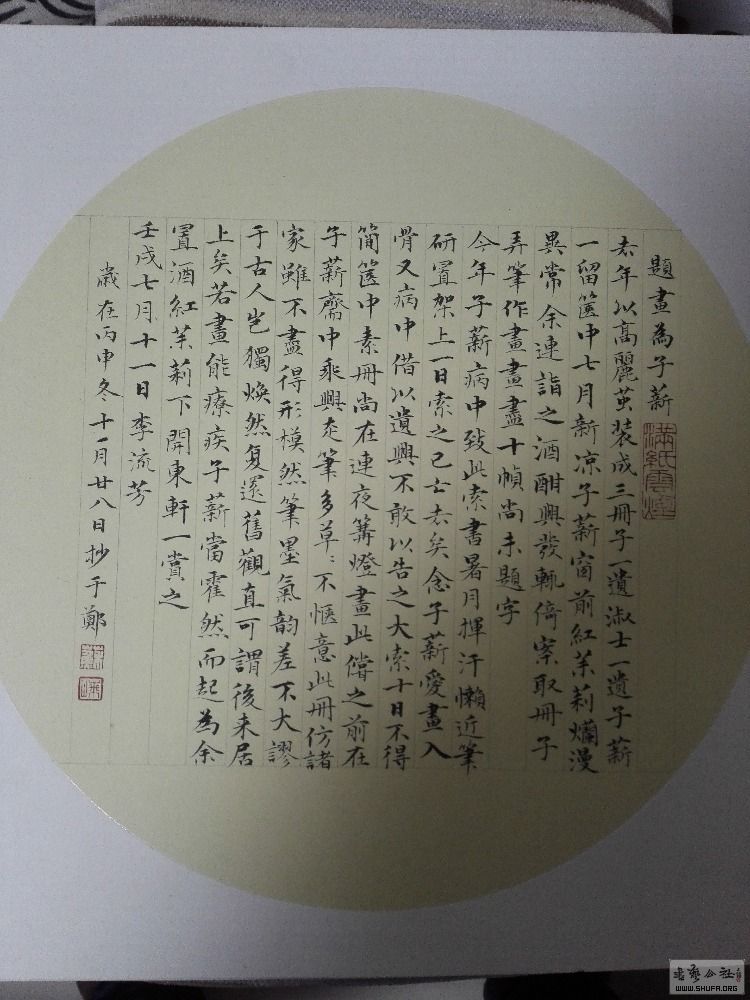 題畫為子薪
滿紙雲煙
去年以高麗茧装成三冊子一遺淑士一遺子薪
一留篋中七月新凉子薪窗前紅茉莉爛漫
異常余連詣之酒酣興發輒倚案取冊子
弄筆作畫畫盡十幀尚未題字
今年子薪病中致此索書暑月揮汗懶近筆
研置架上一日索之已亡去矣念子薪愛畫入
骨又病中借以遺興不敢以告之大索十日不得
簡篋中素冊尚在連夜篝燈畫此償之前在
子薪齋中乘興走筆多草〻不愜意此冊仿諸
家雖不盡得形模然筆墨氣韵差不大謬
于古人岂獨煥然复還舊觀直可謂後来居
上矣若畫能療疾子薪當霍然而起為余
置酒紅茉莉下開東軒一賞之
壬戌七月十一日李流芳
歲在丙申冬十一月廿八日抄于鄭
書艺公社
WWW.SHUFA.ORG